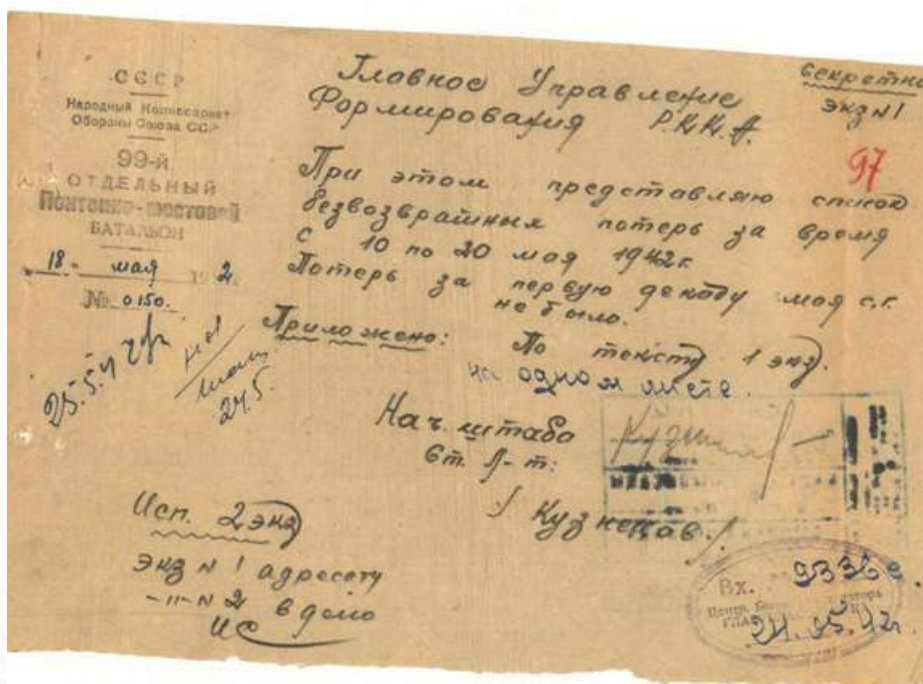 СССР
Народный Комиссариат
Обороны Союза ССР
99-й
ОТДЕЛЬНЫЙ
Понтонно-мостовой
БАТАЛЬОН
18 - мая 1942.
№ 0150.
Секретно
экз № 1
97
Главное Управление
Формирования Р.К.К.А.
При этом представляю список
безвозвратных потерь за время
с 10 по 20 мая 1942 г.
Потерь за первую декаду мая с.г.
не было.
Приложено: По тексту 1 экз.
на одном листе.
Нач. штаба
Ст. л-т:
/Кузнецов./
Исп. 2 экз
экз № 1 адресату
-"- № 2 в дело
Вх. 9336
24.05.42г.